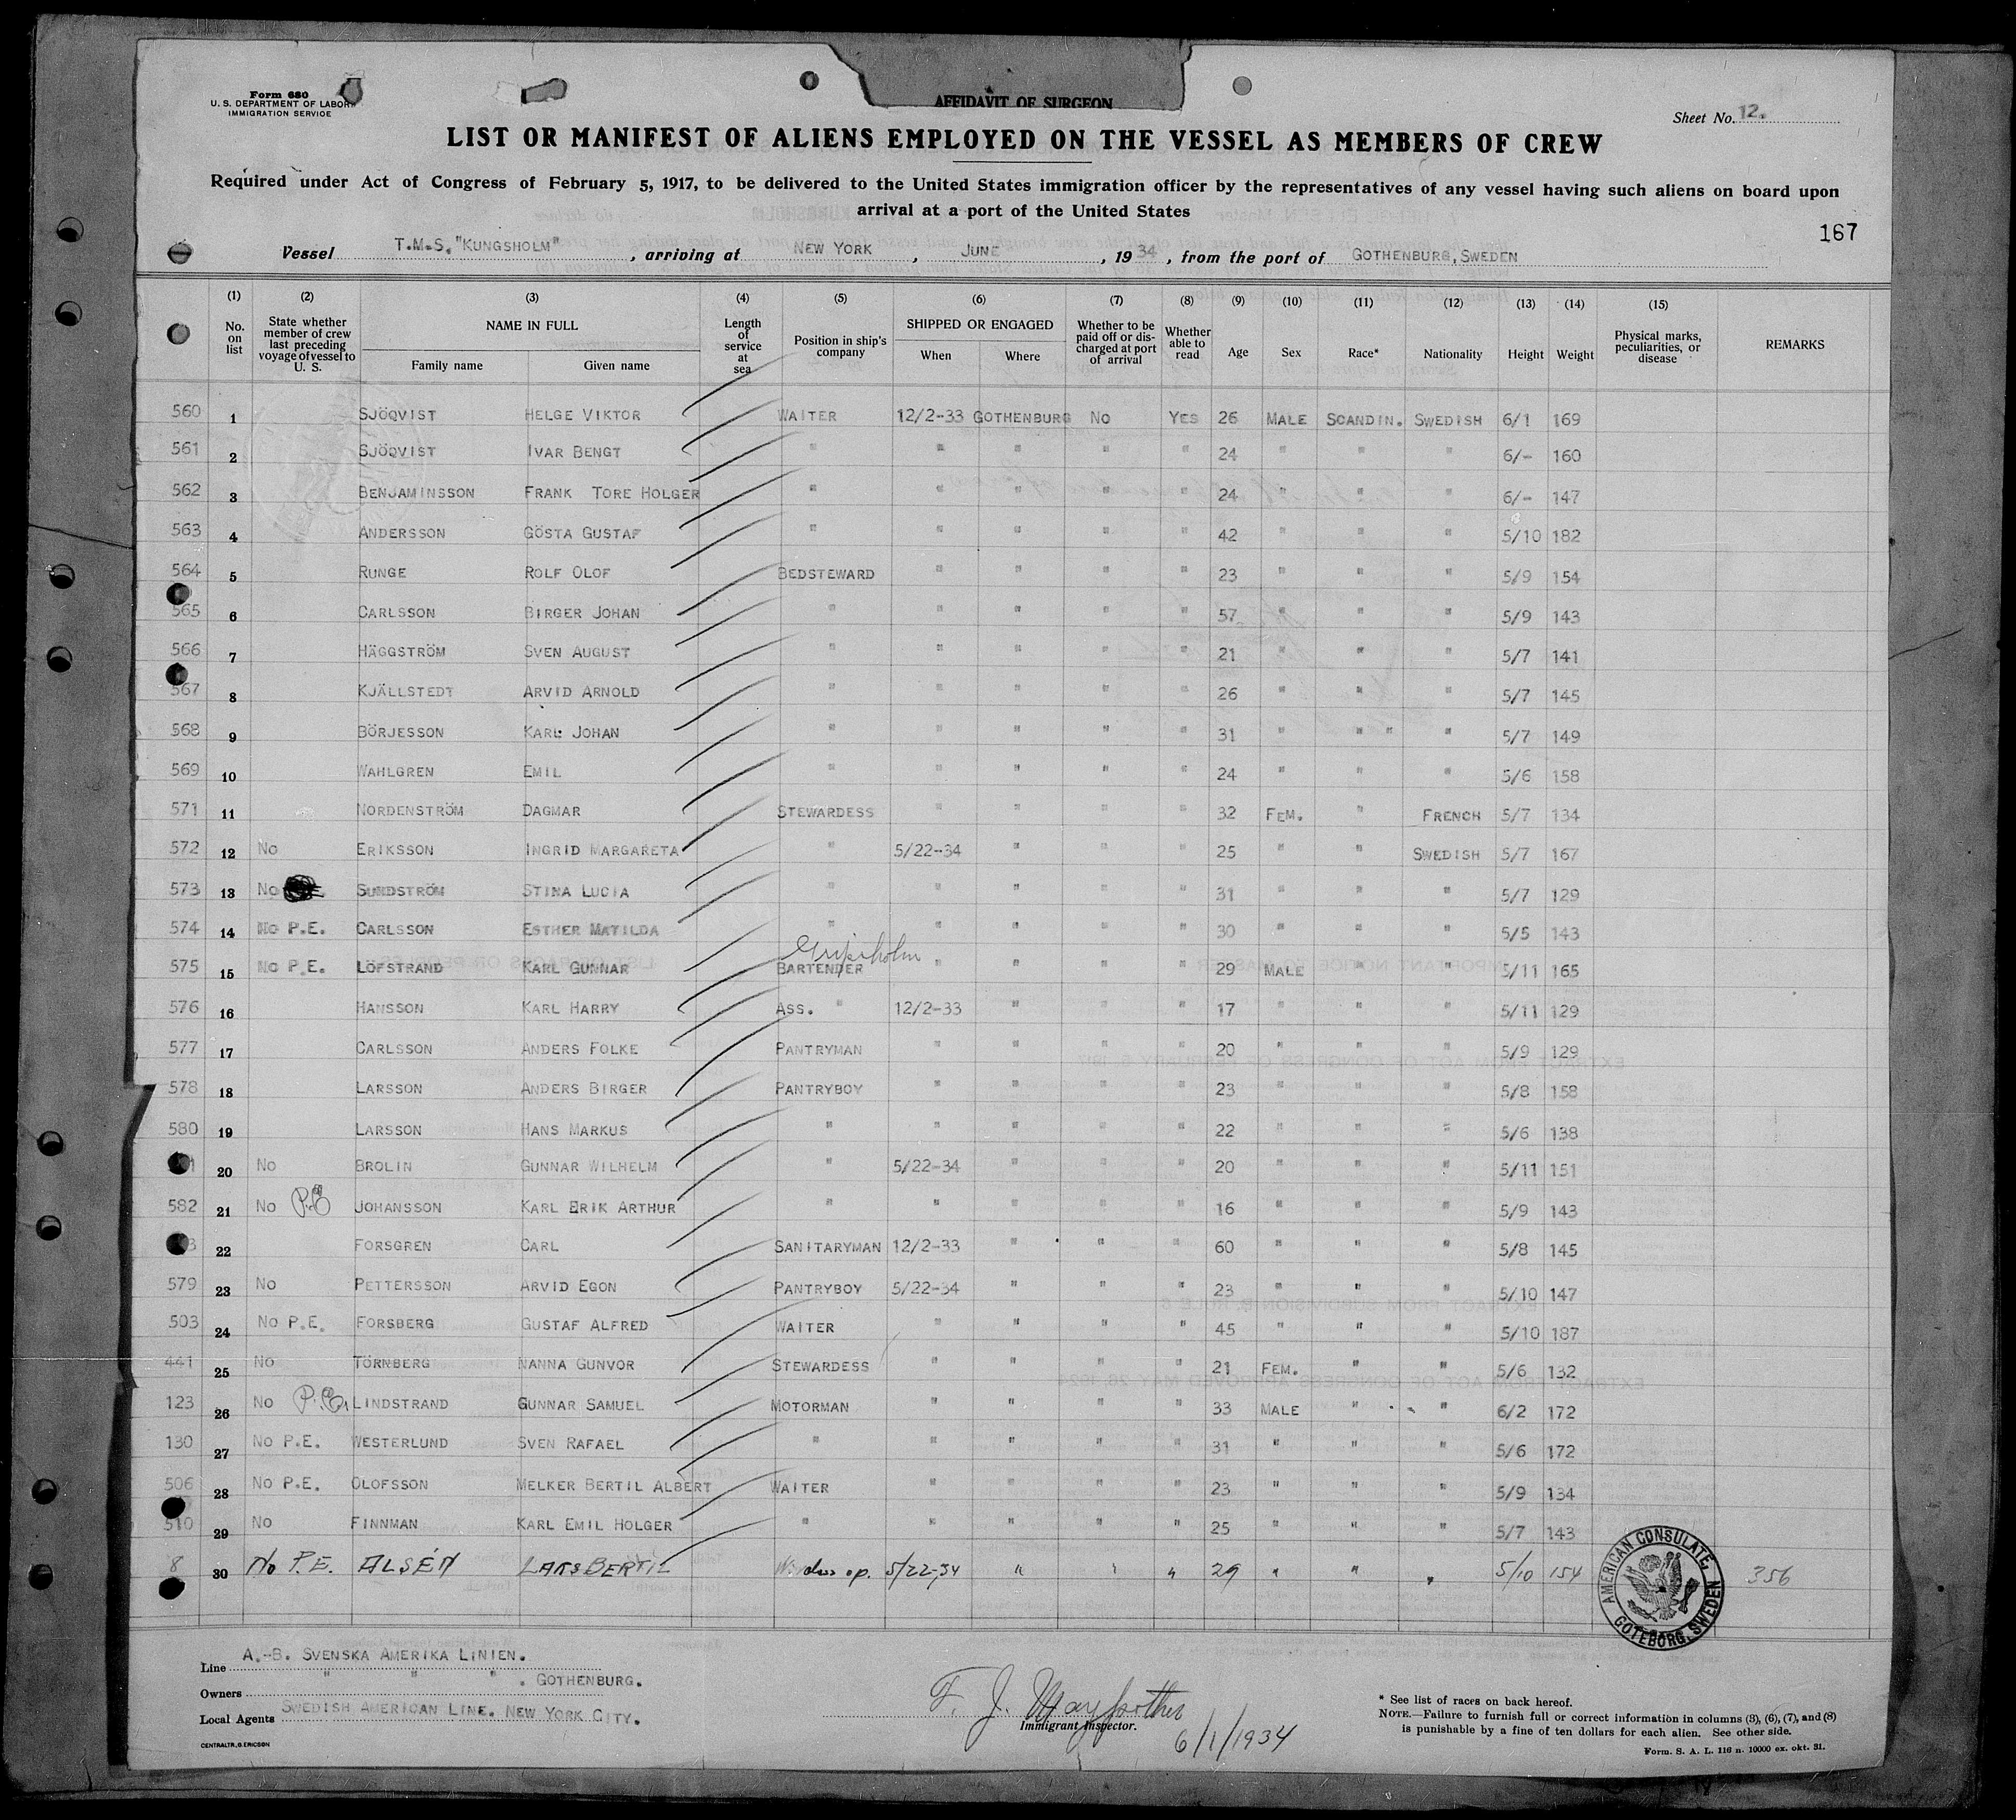 Form 680
U. S. DEPARTMENT OF LABOR
IMMIGRATION SERVICE
AFFIDAVIT OF SURGEON
Sheet No. 12.
LIST OR MANIFEST OF ALIENS EMPLOYED ON THE VESSEL AS MEMBERS OF CREW
Required under Act of Congress of February 5, 1917, to be delivered to the United States immigration officer by the representatives of any vessel having such aliens on board upon
arrival at a port of the United States
167
Vessel T.M.S. "KUNGSHOLM", arriving at NEW YORK, JUNE, 1934, from the port of GOTHENBURG, SWEDEN
(1) (2) (3) (4) (5) (6) (7) (8) (9) (10) (11) (12) (13) (14) (15)
No. on list
State whether member of crew last preceding voyage of vessel to U. S.
NAME IN FULL
Family name
Given name
Length of service at sea
Position in ship's company
SHIPPED OR ENGAGED
When
Where
Whether to be paid off or discharged at port of arrival
Whether able to read
Age
Sex
Race*
Nationality
Height
Weight
Physical marks, peculiarities, or disease
REMARKS
560 1 SJÖQVIST HELGE VIKTOR WAITER 12/2-33 GOTHENBURG NO YES 26 MALE SCANDIN. SWEDISH 6/1 169
561 2 SJÖQVIST IVAR BENGT " " " " " 24 " " " 6/- 160
562 3 BENJAMINSSON FRANK TORE HOLGER " " " " " 24 " " " 6/- 147
563 4 ANDERSSON GÖSTA GUSTAF " " " " " 42 " " " 5/10 182
564 5 RUNGE ROLF OLOF BEDSTEWARD " " " " 23 " " " 5/9 154
565 6 CARLSSON BIRGER JOHAN " " " " " 57 " " " 5/9 143
566 7 HÄGGSTRÖM SVEN AUGUST " " " " " 21 " " " 5/7 141
567 8 KJÄLLSTEDT ARVID ARNOLD " " " " " 26 " " " 5/7 145
568 9 BÖRJESSON KARL JOHAN " " " " " 31 " " " " 5/7 149
569 10 WAHLGREN EMIL " " " " " 24 " " " 5/6 158
571 11 NORDENSTRÖM DAGMAR STEWARDESS " " " " 32 FEM. " FRENCH 5/7 134
572 12 NO ERIKSSON INGRID MARGARETA " 5/22-34 " " " 25 " " SWEDISH 5/7 167
573 13 NO SUNDSTRÖM STINA LUCIA " " " " " 31 " " " 5/7 129
574 14 NO P.E. CARLSSON ESTHER MATILDA " " " " " 30 " " " 5/5 143
Gripsholm
575 15 NO P.E. LÖFSTRAND KARL GUNNAR BARTENDER " " " " 29 MALE " " 5/11 165
576 16 HANSSON KARL HARRY ASS. " 12/2-33 " " " 17 " " " 5/11 129
577 17 CARLSSON ANDERS FOLKE PANTRYMAN " " " " 20 " " " 5/9 129
578 18 LARSSON ANDERS BIRGER PANTRYBOY " " " " 23 " " " 5/8 158
580 19 LARSSON HANS MARKUS " " " " " 22 " " " 5/6 138
20 NO BROLIN GUNNAR WILHELM " 5/22-34 " " " 20 " " " 5/11 151
582 21 NO P.E JOHANSSON KARL ERIK ARTHUR " " " " " 16 " " " 5/9 143
22 FORSGREN CARL SANITARYMAN 12/2-33 " " " 60 " " " 5/8 145
579 23 NO PETTERSSON ARVID EGON PANTRYBOY 5/22-34 " " " 23 " " " 5/10 147
503 24 NO P.E. FORSBERG GUSTAF ALFRED WAITER " " " " 45 " " " 5/10 187
441 25 NO TÖRNBERG NANNA GUNVOR STEWARDESS " " " " 21 FEM. " " 5/6 132
123 26 NO P.E. LINDSTRAND GUNNAR SAMUEL MOTORMAN " " " " 33 MALE " " 6/2 172
130 27 NO P.E. WESTERLUND SVEN RAFAEL " " " " " 31 " " " 5/6 172
506 28 NO P.E. OLOFSSON MELKER BERTIL ALBERT WAITER " " " " 23 " " " 5/9 134
510 29 NO FINNMAN KARL EMIL HOLGER " " " " " 25 " " " 5/7 143
8 30 No P.E. ALSÉN LARS BERTIL op. 5/22-34 " " " 29 " " " 5/10 154 356
AMERICAN CONSULATE, GOTEBORG, SWEDEN
Line A.-B. SVENSKA AMERIKA LINIEN.
Owners " " " . GOTHENBURG.
Local Agents SWEDISH AMERICAN LINE. NEW YORK CITY.
CENTRALTR, G. ERICSON
F. J. Mayforther
Immigrant Inspector.
6/1/1934
* See list of races on back hereof.
NOTE.—Failure to furnish full or correct information in columns (3), (6), (7), and (8)
is punishable by a fine of ten dollars for each alien. See other side.
Form. S. A. L. 116 n. 10000 ex. okt. 31.